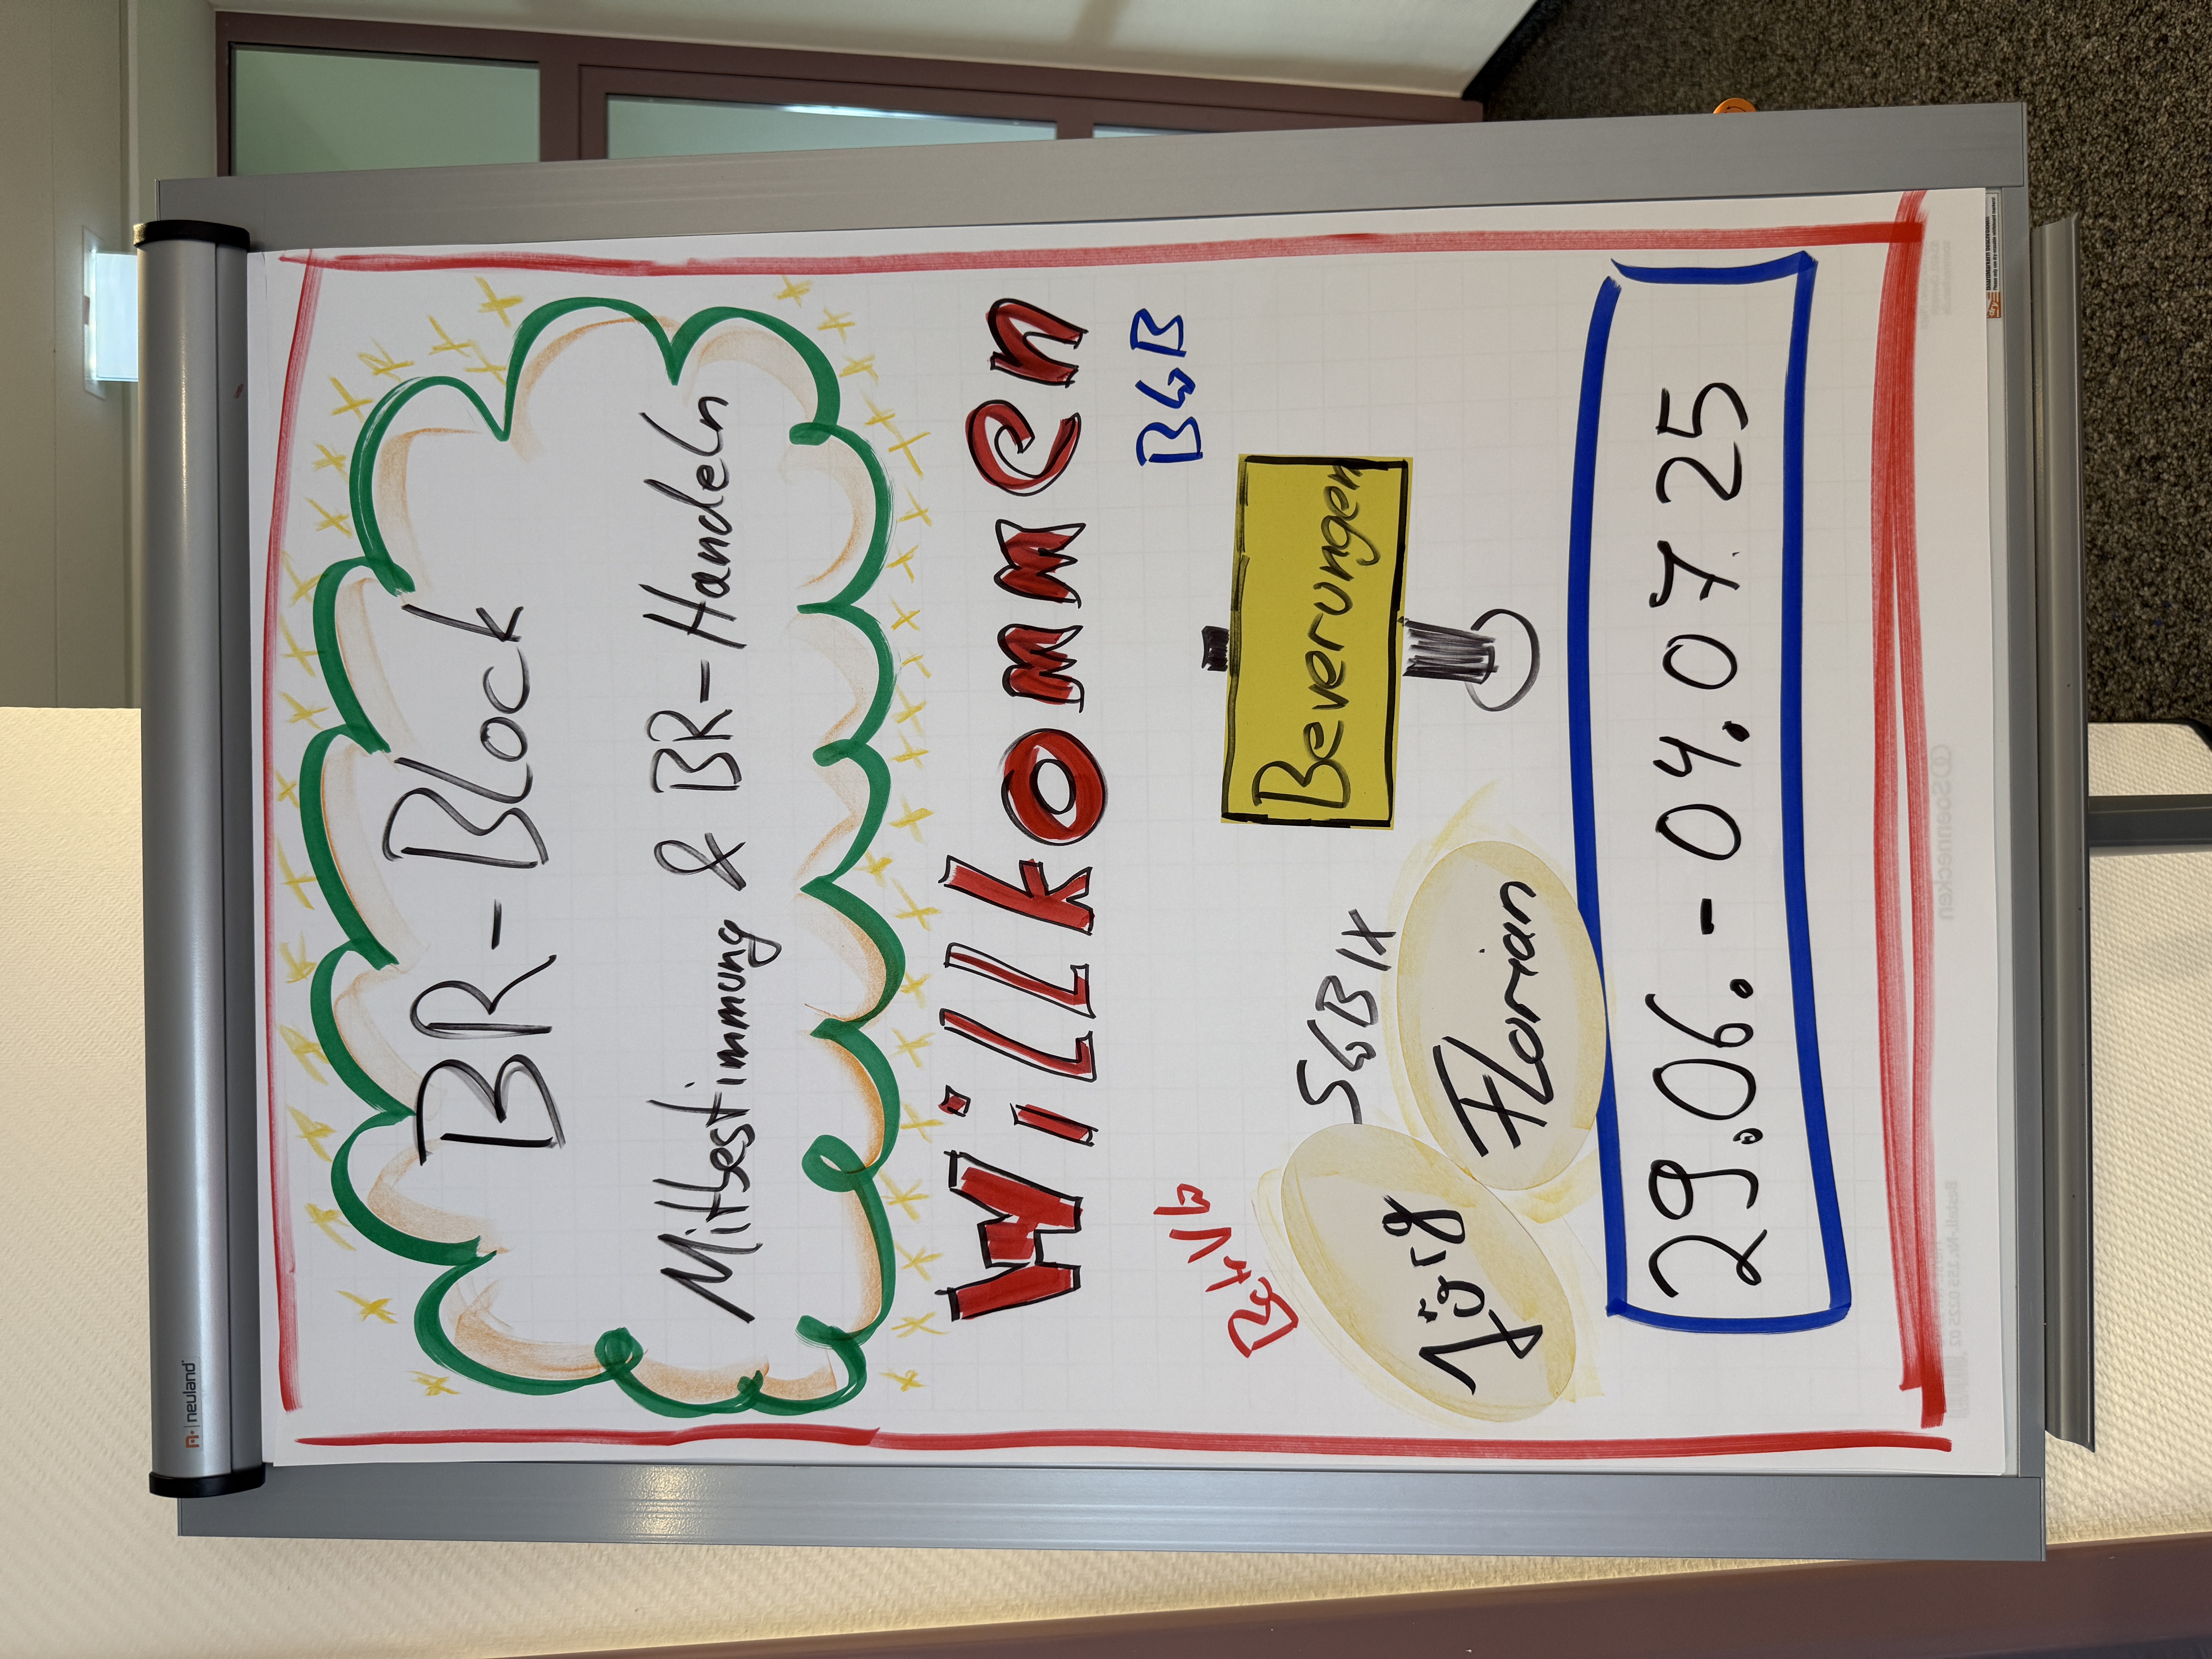 neuland
BR-Block
Mitbestimmung & BR-Handeln
Willkommen
BGB
BetrVG
Beverungen
SGB IX
Jörg
Florian
29.06. - 04.07.25
Soennecken